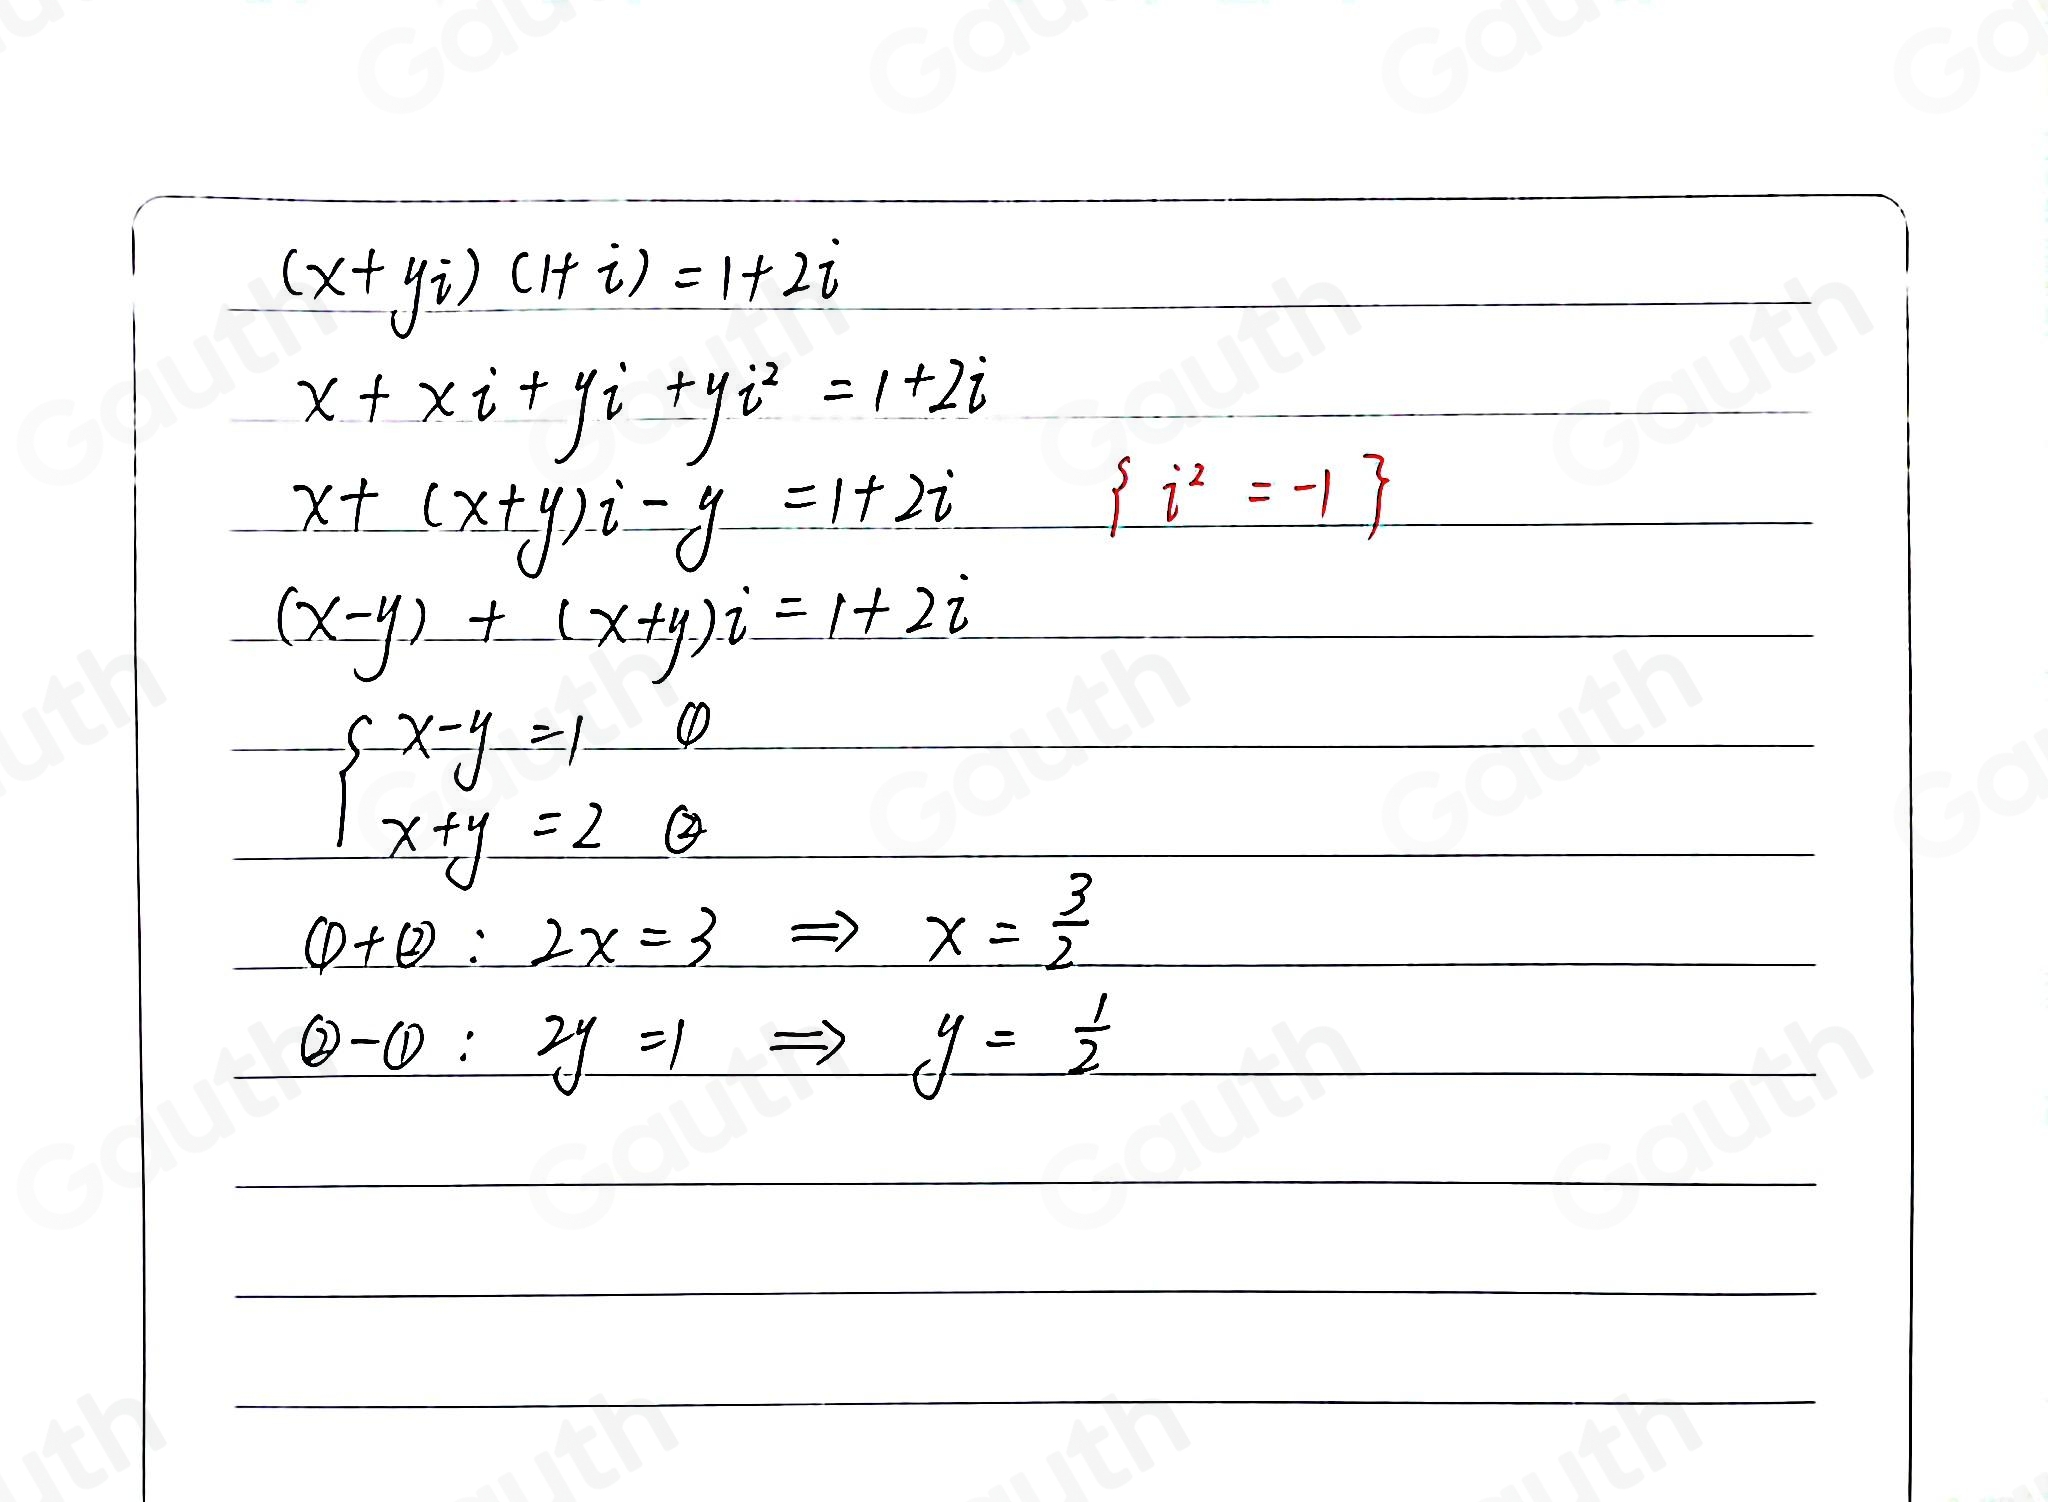 (x+yi)(1+i)=1+2i
x+xi+yi+yi²=1+2i
x+(x+y)i-y=1+2i {i²=-1}
(x-y)+(x+y)i=1+2i
{x-y=1 ①
x+y=2 ②
①+②: 2x=3 ⇒ x=3/2
②-①: 2y=1 ⇒ y=1/2